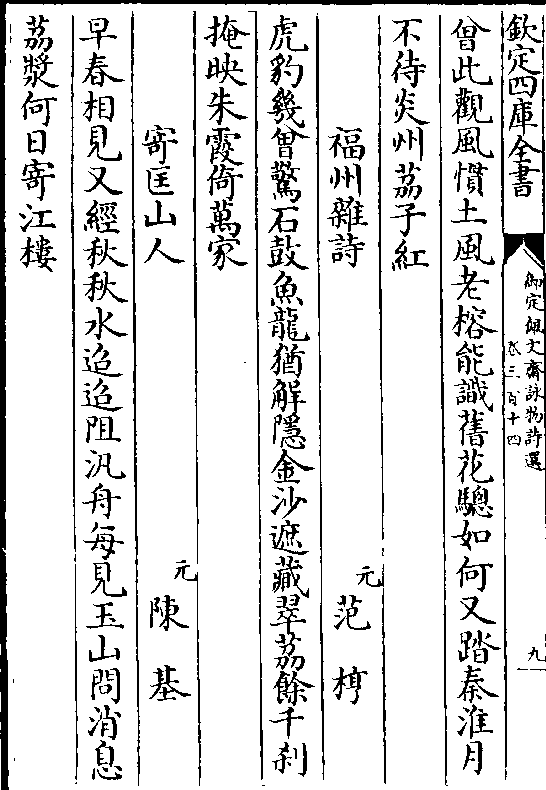 欽定四庫全書
御定佩文齋詠物詩選
卷三百十四
九
曾此觀風慣土風老榕能識舊花驄如何又踏秦淮月
不待炎州荔子紅
福州雜詩
元 范梈
虎豹幾曾驚石鼓魚龍猶解隱金沙遮藏翠荔餘千刹
掩映朱霞倚萬家
寄匡山人
元 陳基
早春相見又經秋秋水迢迢阻汎舟每見玉山問消息
荔漿何日寄江樓